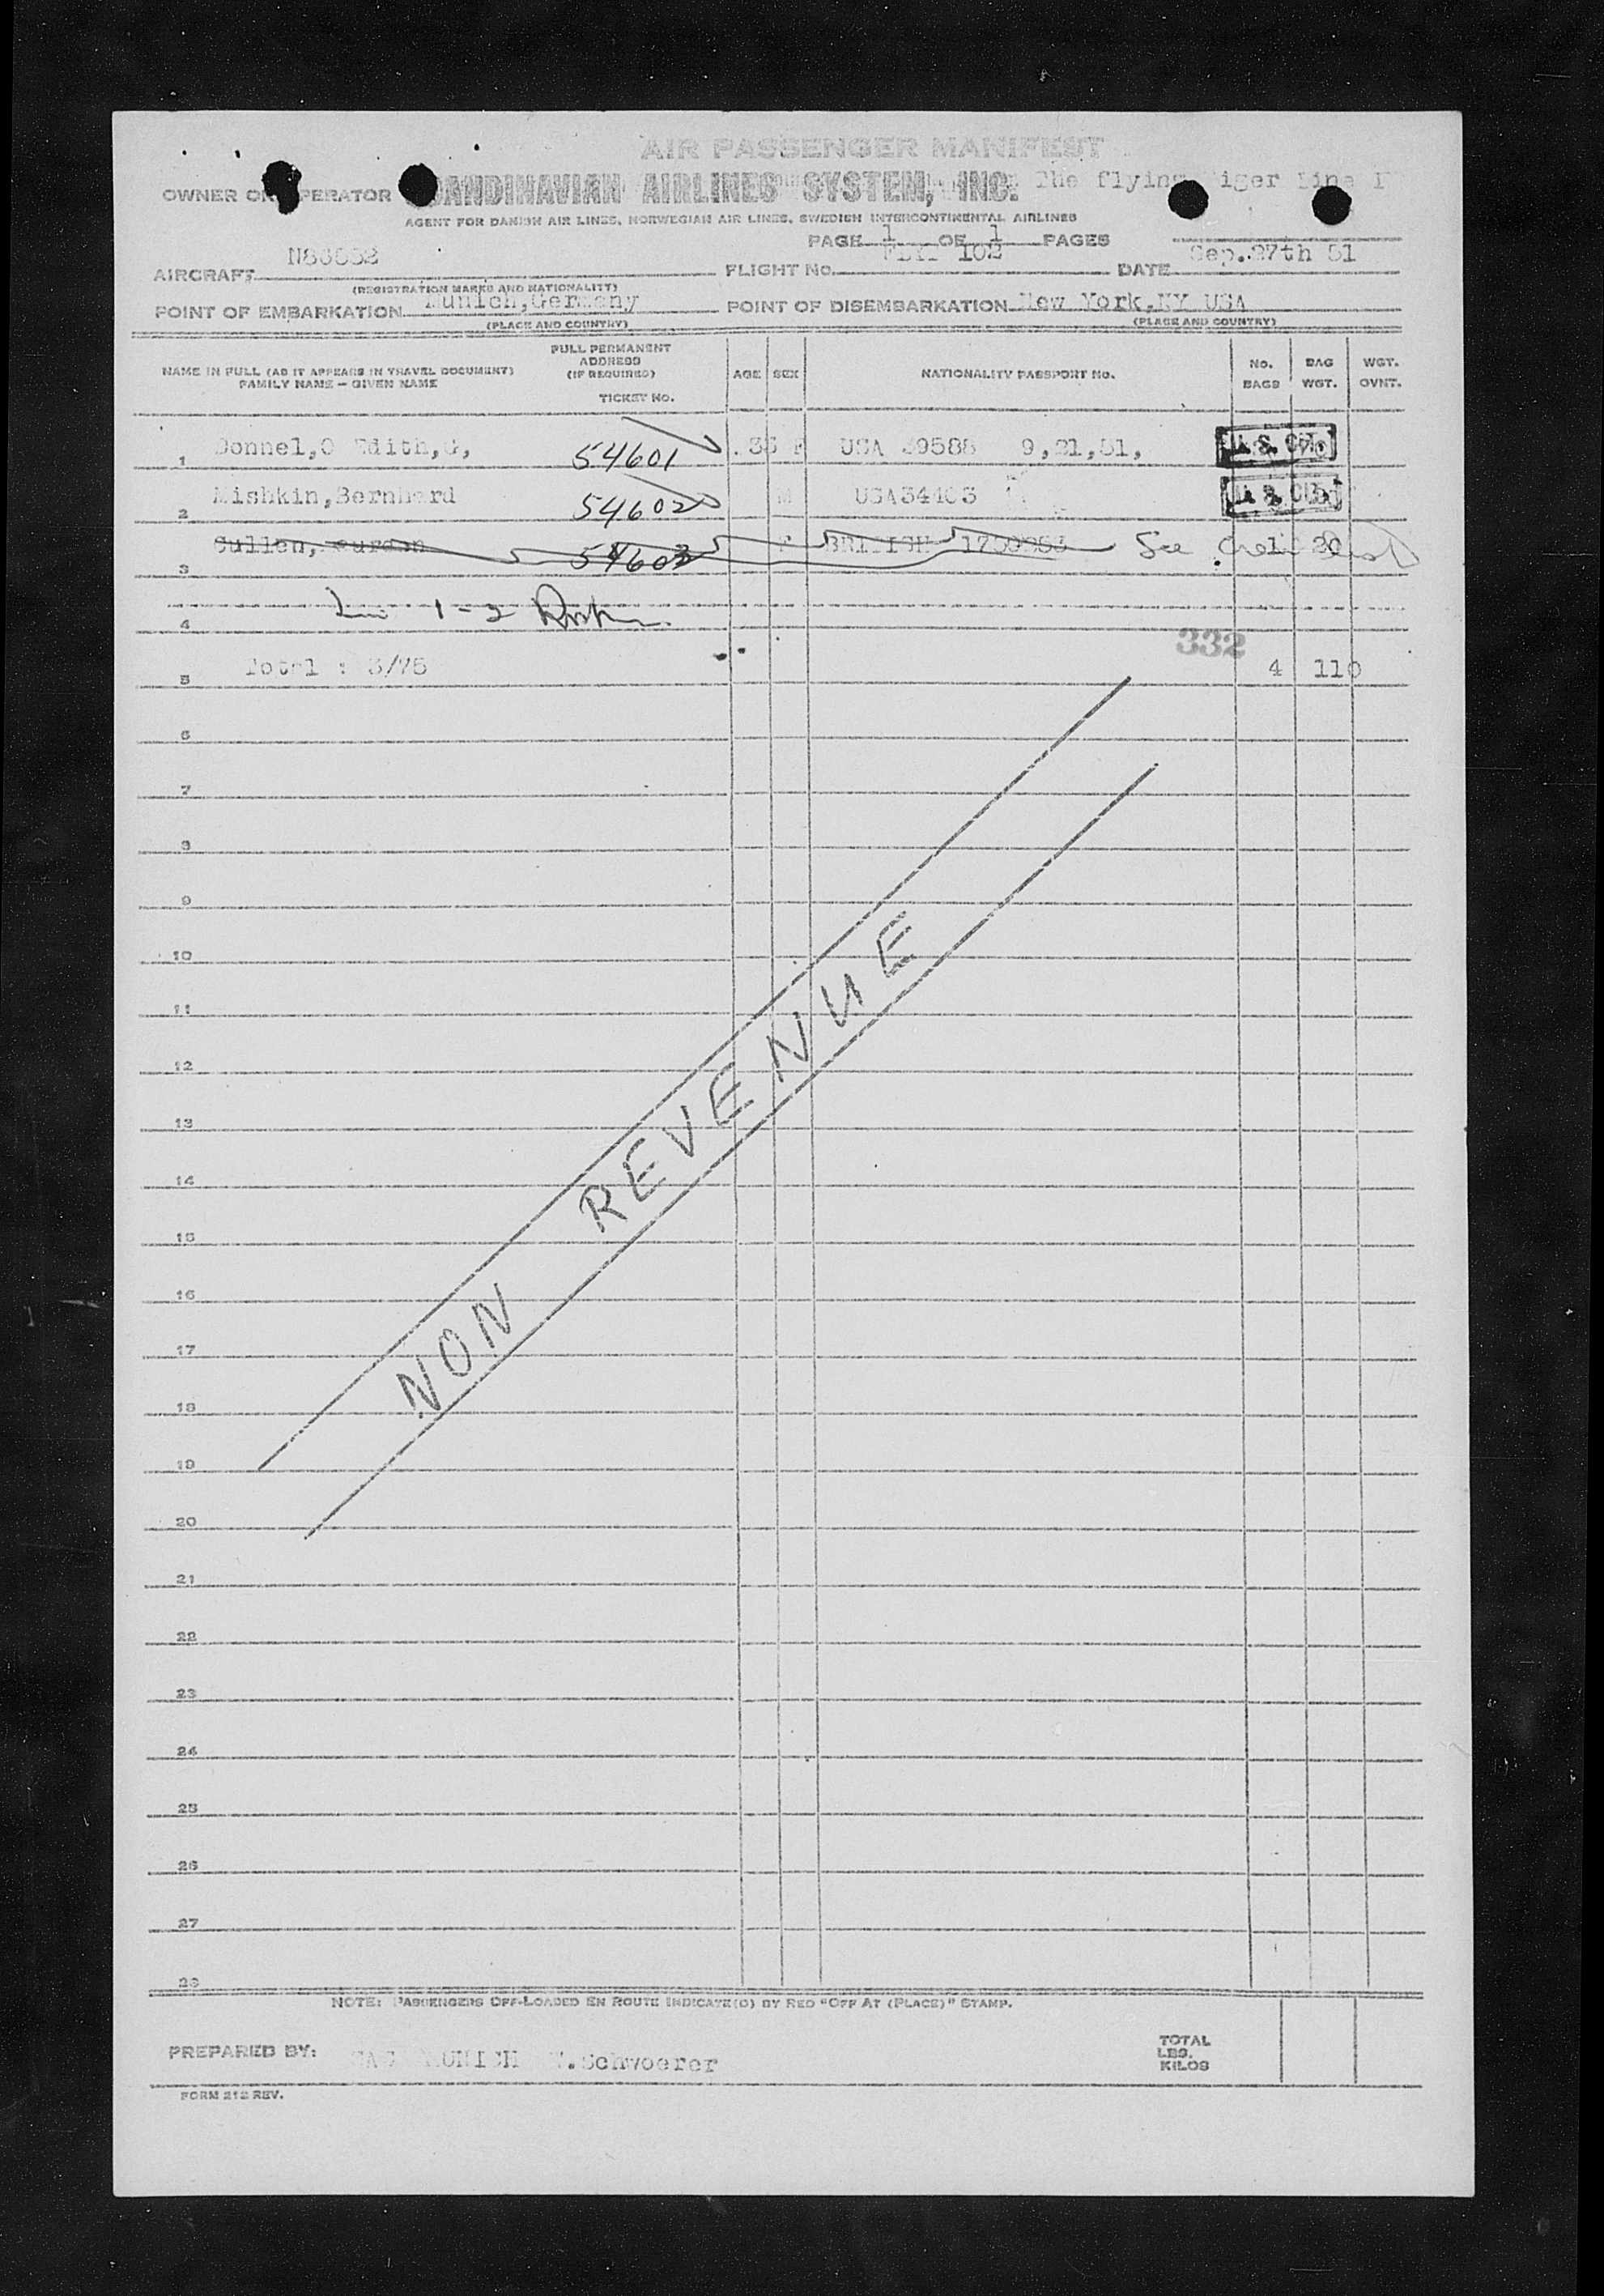 AIR PASSENGER MANIFEST
OWNER OR OPERATOR SCANDINAVIAN AIRLINES SYSTEM, INC. The flying Tiger Line
AGENT FOR DANISH AIR LINES, NORWEGIAN AIR LINES, SWEDISH INTERCONTINENTAL AIRLINES
PAGE 1 OF 1 PAGES
AIRCRAFT FLIGHT No. 102 DATE Sep.27th 51
(REGISTRATION MARKS AND NATIONALITY)
POINT OF EMBARKATION Munich,Germany POINT OF DISEMBARKATION New York,NY USA
(PLACE AND COUNTRY) (PLACE AND COUNTRY)
NAME IN FULL (AS IT APPEARS IN TRAVEL DOCUMENT) FAMILY NAME - GIVEN NAME FULL PERMANENT ADDRESS (IF REQUIRED) TICKET No. AGE SEX NATIONALITY PASSPORT No. No. BAGS BAG WGT. WGT. OVNT.
1 Donnel,O Edith,G, 54601 F USA 9,21,51, U.S. CIT.
2 Mishkin,Bernhard 54602 M USA34103 U.S. CIT.
3 Cullen, 54603 F BRITISH See 1 20
4 1-2
332
5 Total : 3/75 4 110
6
7
8
9
10
11
12
13
14
15
16
17
18
19
20
21
22
23
24
25
26
27
28
NON REVENUE
NOTE: PASSENGERS OFF-LOADED EN ROUTE INDICATE(D) BY RED "OFF AT (PLACE)" STAMP.
PREPARED BY: SAS MUNICH Schwoerer TOTAL LBS. KILOS
FORM 212 REV.